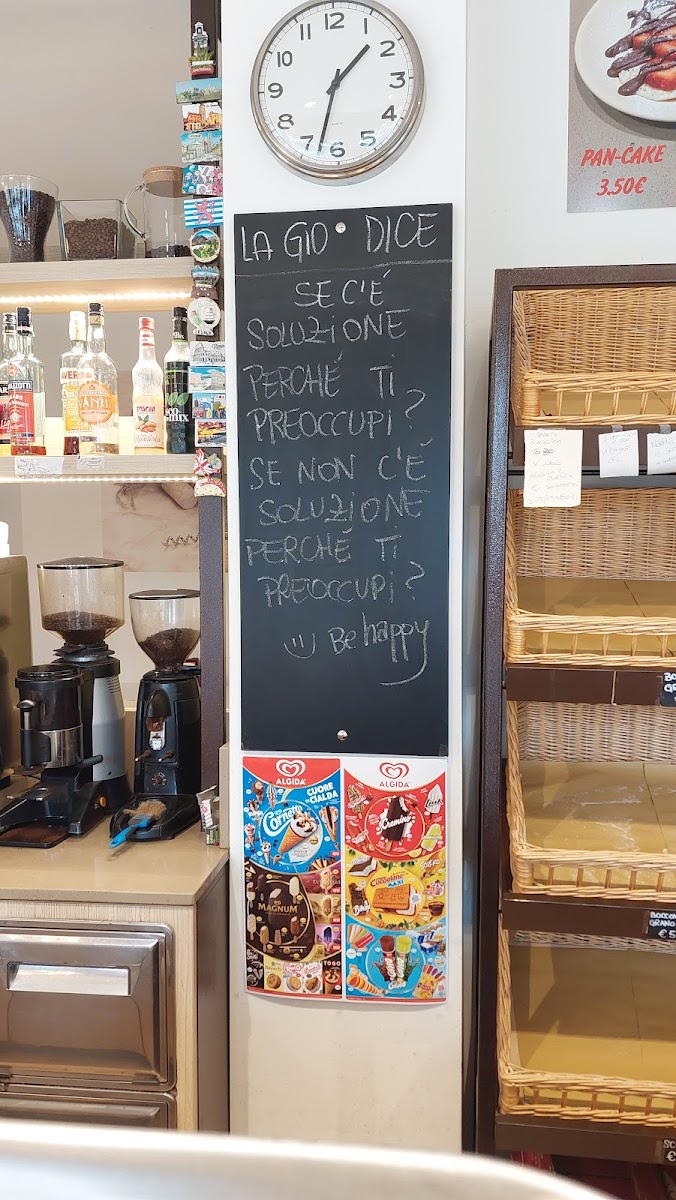 12
11
1
10
2
9
3
8
4
7
6
5
PAN-CAKE
3.50€
LA GIO DICE
SE C'É
SOLUZIONE
PERCHÉ TI
PREOCCUPI?
SE NON C'É
SOLUZIONE
PERCHÉ TI
PREOCCUPI?
Be happy
ALGIDA
CUORE DI CIALDA
Cornetto
MAGNUM
ALGIDA
Cremino
Cucciolone
MAXI
BOCCON
GRANO
€5